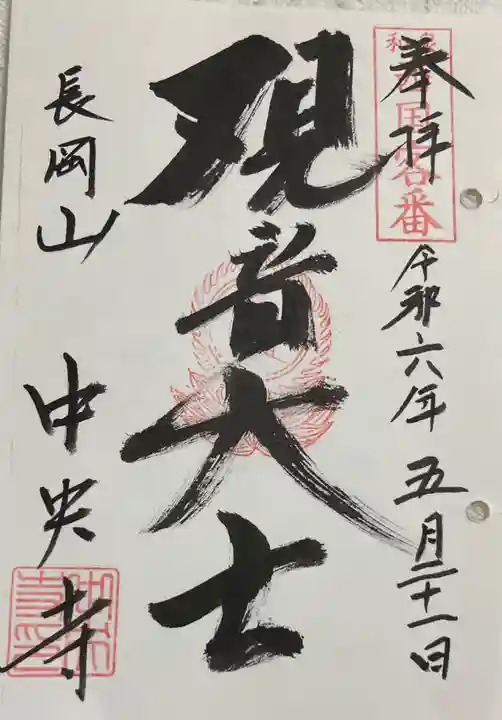 奉拝
令和六年 五月二十一日
観音大士
長岡山 中央寺